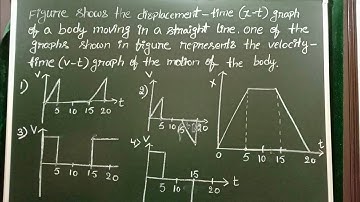 Figure shows the displacement-time (x-t) graph
of a body moving in a straight line. one of the
graphs shown in figure represents the velocity-
time (v-t) graph of the motion of the body.
1) V t 5 10 15 20
2) V t 5 10 15 20
X t 5 10 15 20
3) V t 5 10 15 20
4) V t 5 10 15